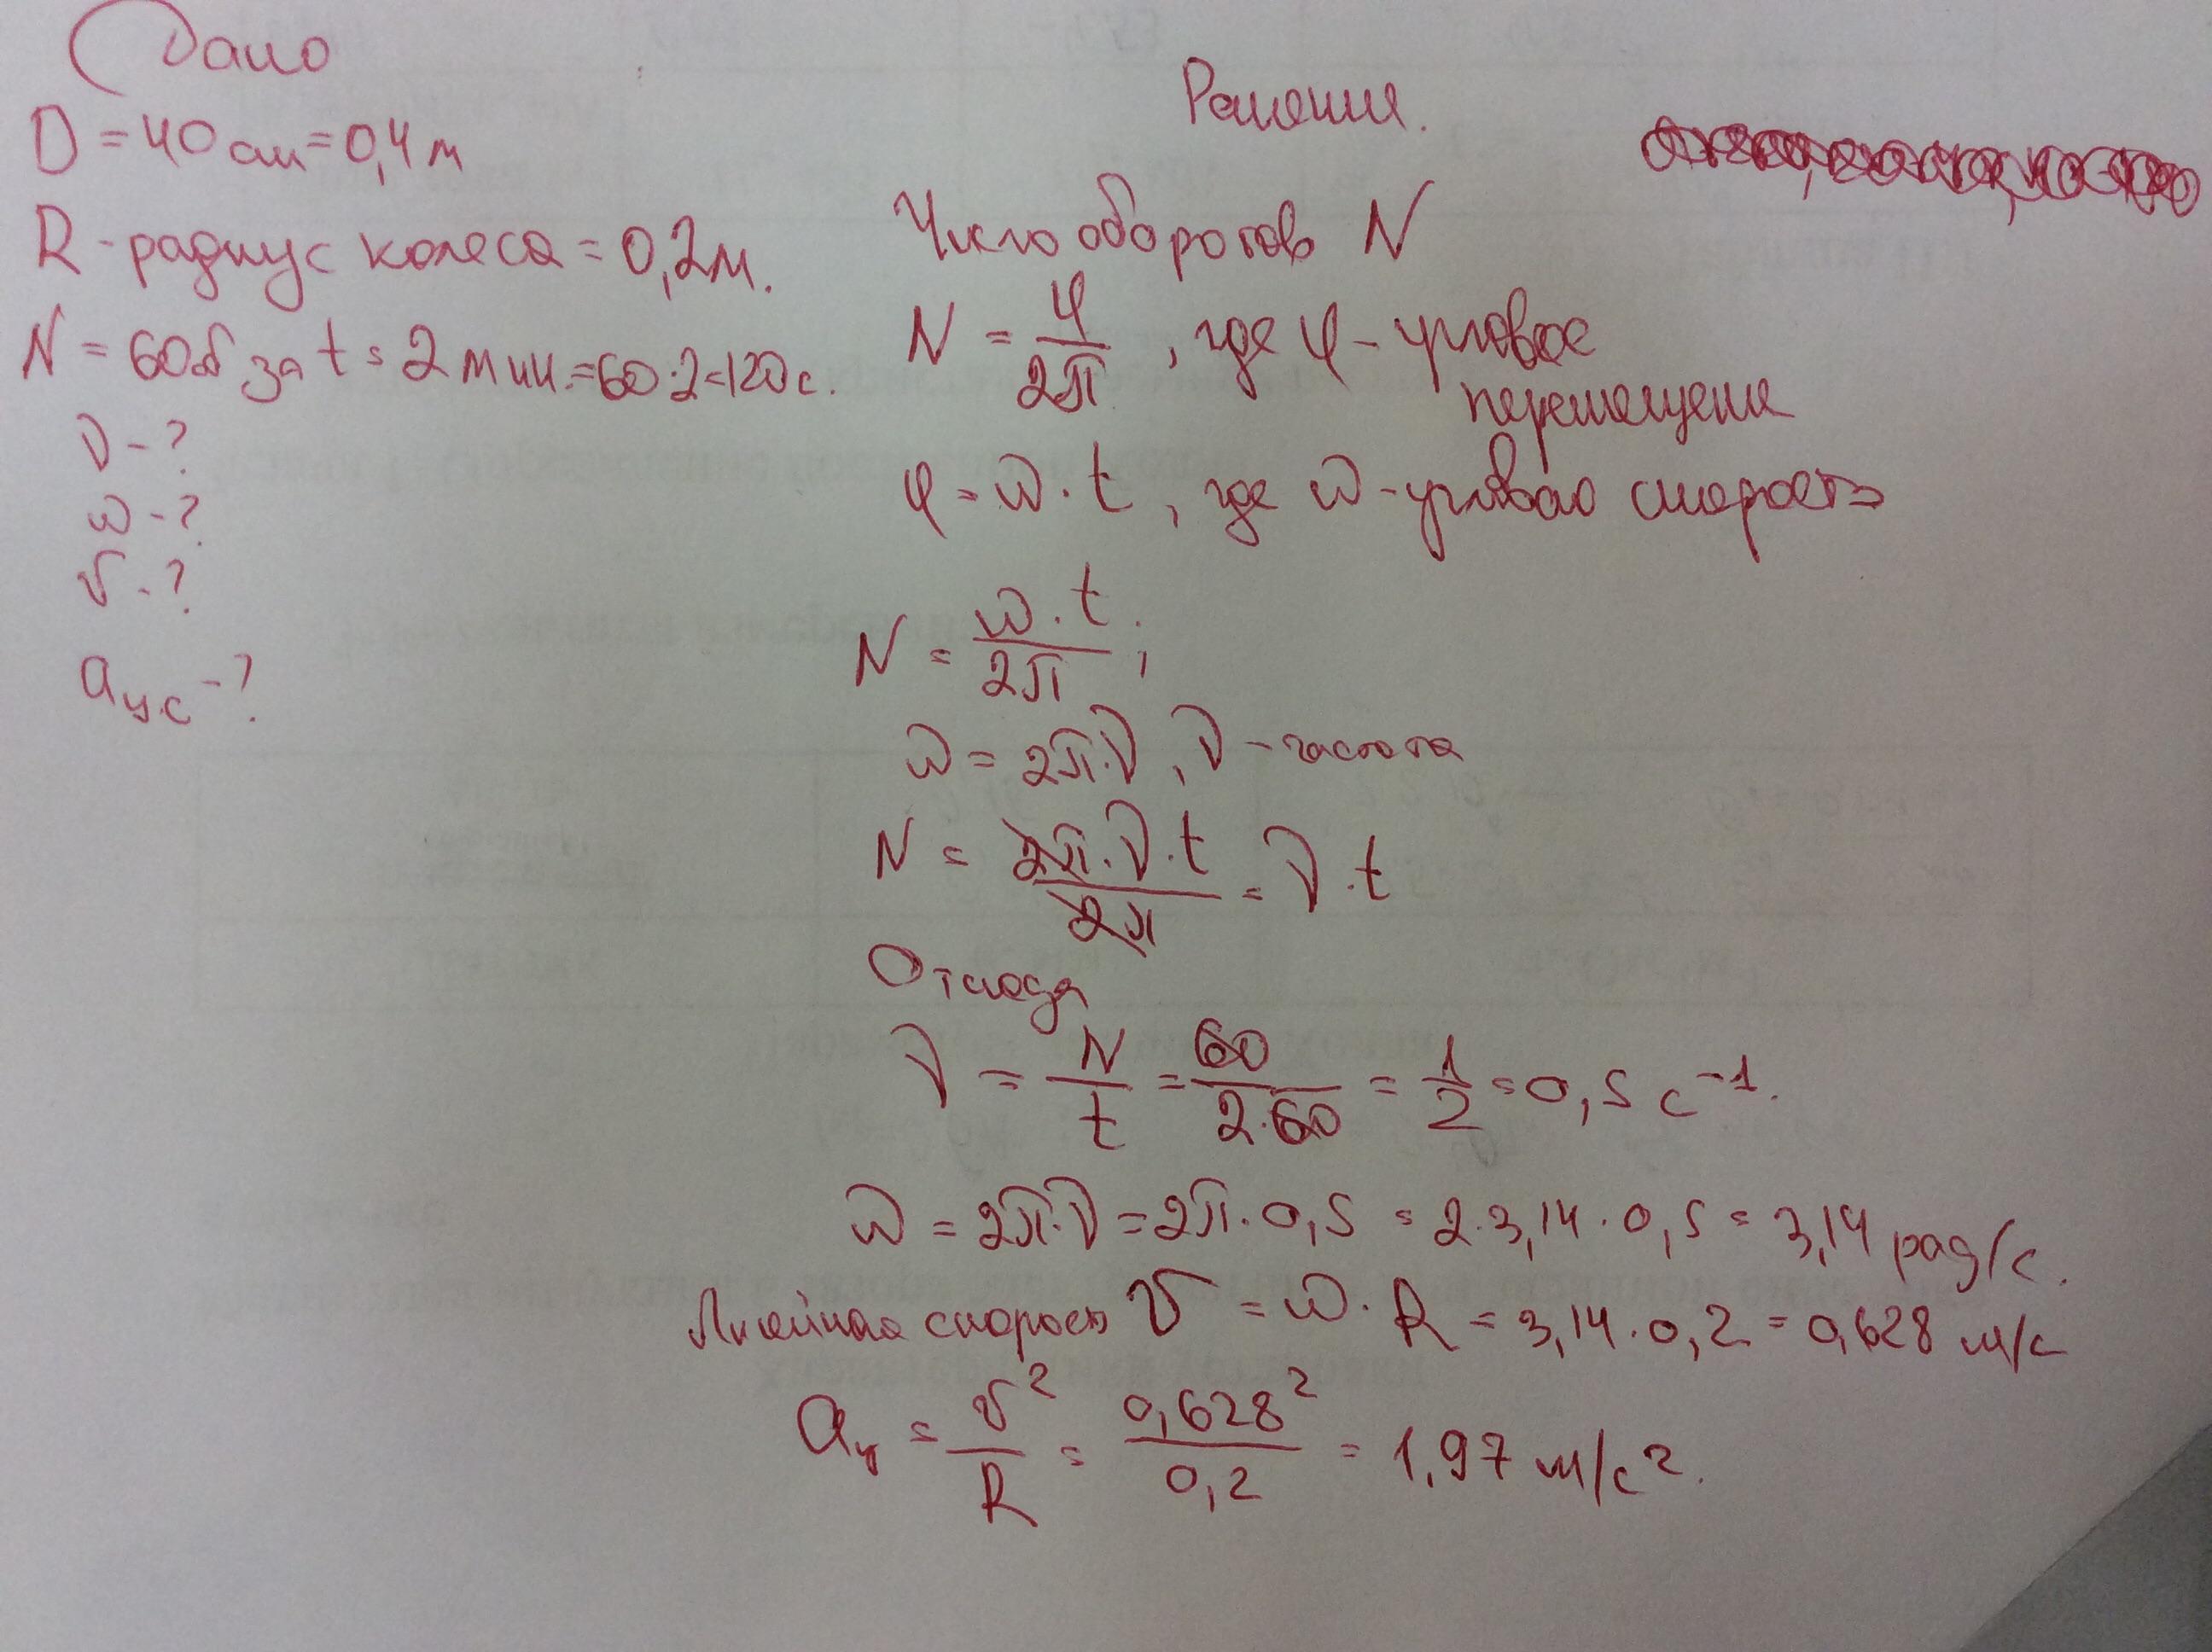 Дано
D = 40 см = 0,4 м
R - радиус колеса = 0,2 м.
N = 60 об за t = 2 мин. = 60·2 = 120 с.
ν - ?
ω - ?
v - ?
aцс - ?
Решение.
Число оборотов N
N = φ/2π, где φ - угловое
перемещение
φ = ω·t, где ω - угловая скорость
N = ω·t/2π;
ω = 2π·ν, ν - частота
N = 2π·ν·t/2π = ν·t
Отсюда
ν = N/t = 60/2·60 = 1/2 = 0,5 с⁻¹.
ω = 2π·ν = 2π·0,5 = 2·3,14·0,5 = 3,14 рад/с.
Линейная скорость v = ω·R = 3,14·0,2 = 0,628 м/с
aц = v²/R = 0,628²/0,2 = 1,97 м/с².